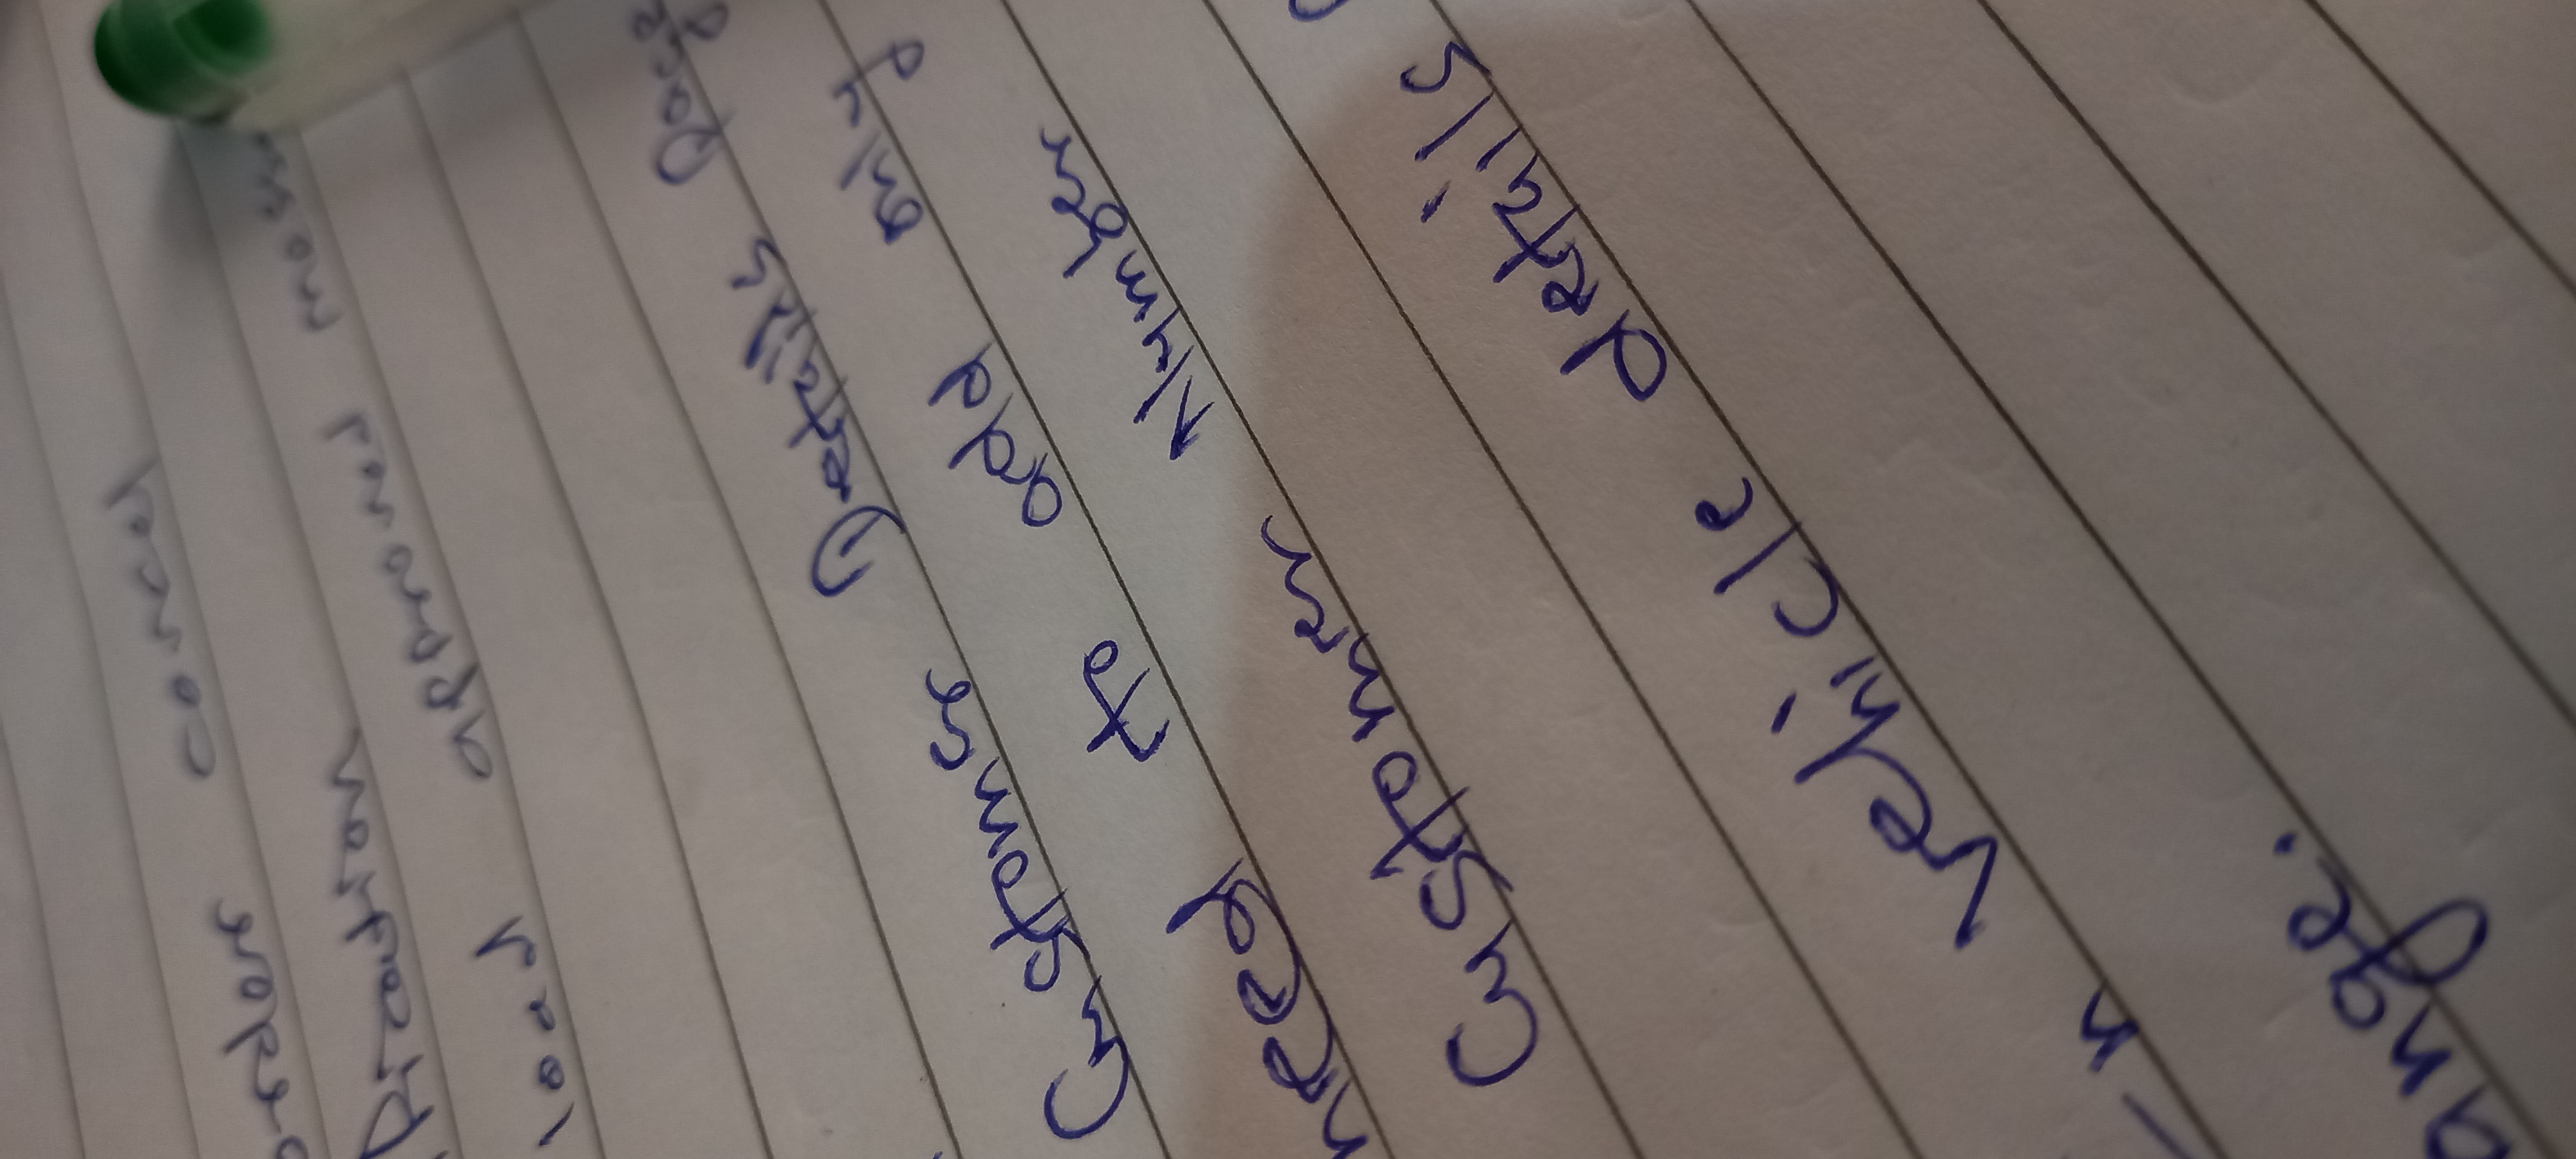 order cancel
ification
load approved messa
Customer Details Page
need to add only
Customer Number
n vehicle details
ange.